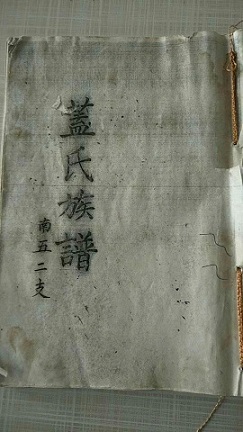 蓋氏族譜
南五二支